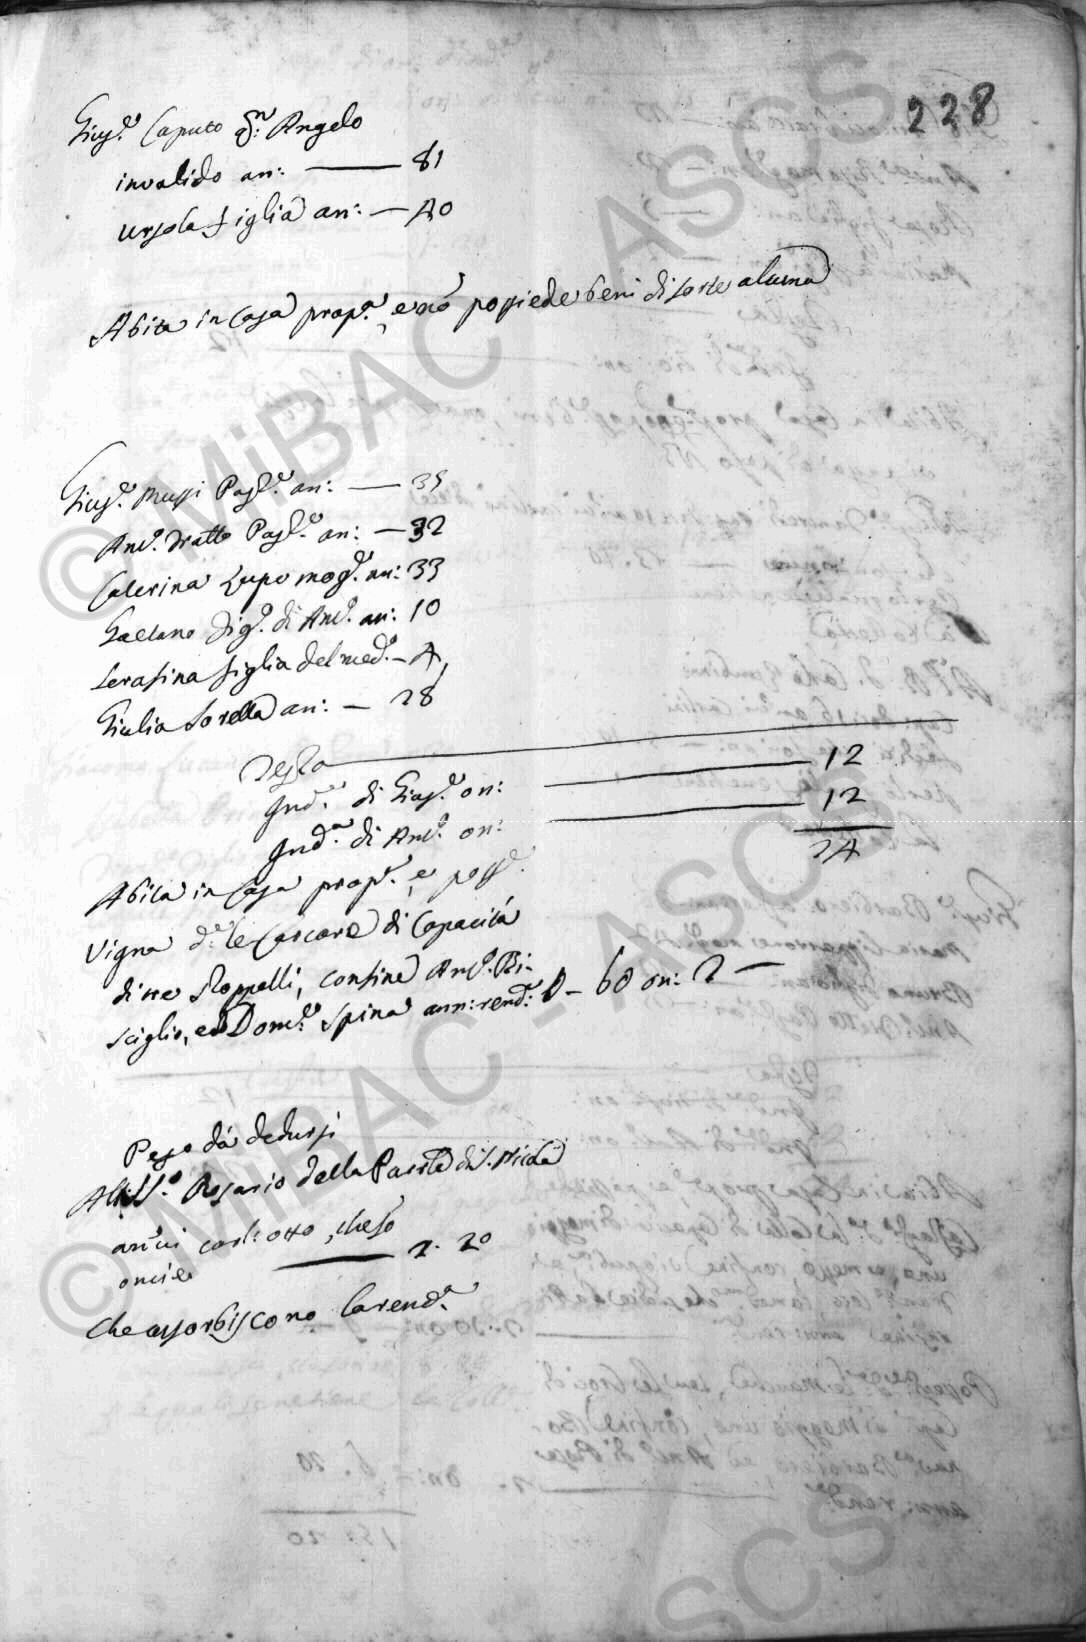 228
Gius.e Caputo q.m Angelo
invalido an: — 81
Ursola figlia an: — 40
Abita in Casa prop.a, e nò possiede beni di sorte alcuna
Gius.e Mussi Pagl.e an: — 35
Ant.o Dratto Pagl.e an: — 32
Caterina Lupo mog.e an: 33
Gaetano fig.o di Ant.o an: 10
Serafina figlia del med.o — 4
Giulia Sorella an: — 28
Testa
Ind.a di Gius.e on: — 12
Ind.a di Ant.o on: — 12
24
Abita in Casa prop.a, e poss.e
Vigna d.a le Cascare di Capacità
di tre stoppelli, confine Ant.o Bi-
sciglio, e Dom.o Spina ann: rend: D — 60 on: 2 —
Peso da dedursi
Al SS.o Rosario della Parr.a di S. Nicola
annui carl: otto, che so
oncie — 2. 20
che assorbiscono la rend.a
© MiBAC - ASCS
© MiBAC - ASCS
ASCS